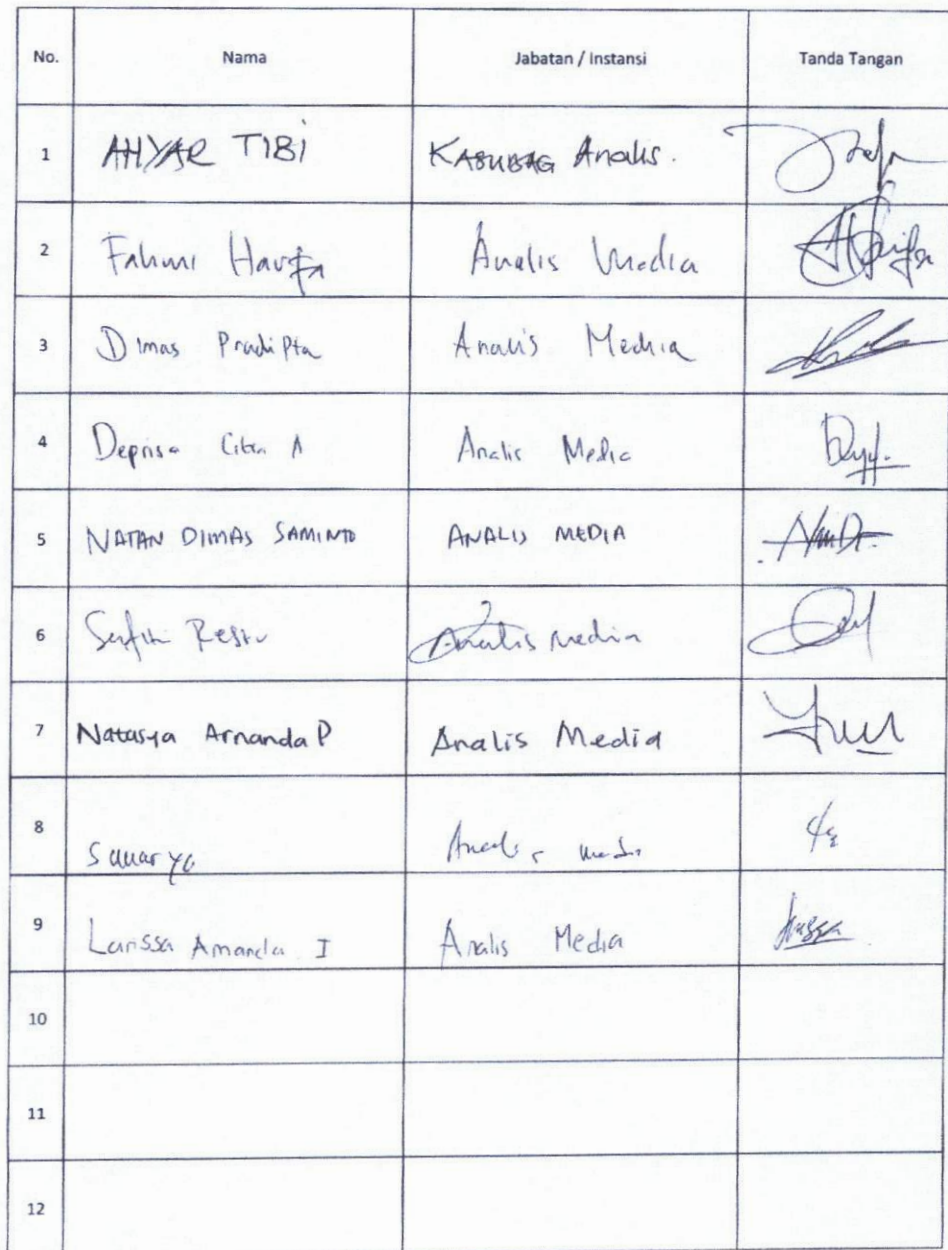 No. Nama Jabatan / Instansi Tanda Tangan
1 AHYAR TIBI KASUBAG Analis.
2 Fahmi Analis Media
3 Dimas Pradipta Analis Media
4 Deprisa Citra A Analis Media
5 NATAN DIMAS SAMINTO ANALIS MEDIA
6 Restu Analis Media
7 Natasya Arnanda P Analis Media
8 Sunaryo Analis media
9 Larissa Amanda I Analis Media
10
11
12